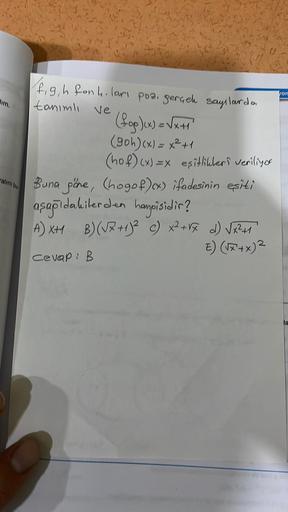 f, g, h fonk. ları pozi gerçek sayılarda
tanımlı ve
(fog)(x) = √x+1
(goh)(x) = x²+1
(hof)(x) = x eşitlikleri veriliyor
Buna göre, (hogof)(x) ifadesinin eşiti
aşağıdakilerden hangisidir?
A) x+1 B) (√x+1)² C) x²+√x d) √x²+1
E) (√x+x)²
cevap : B